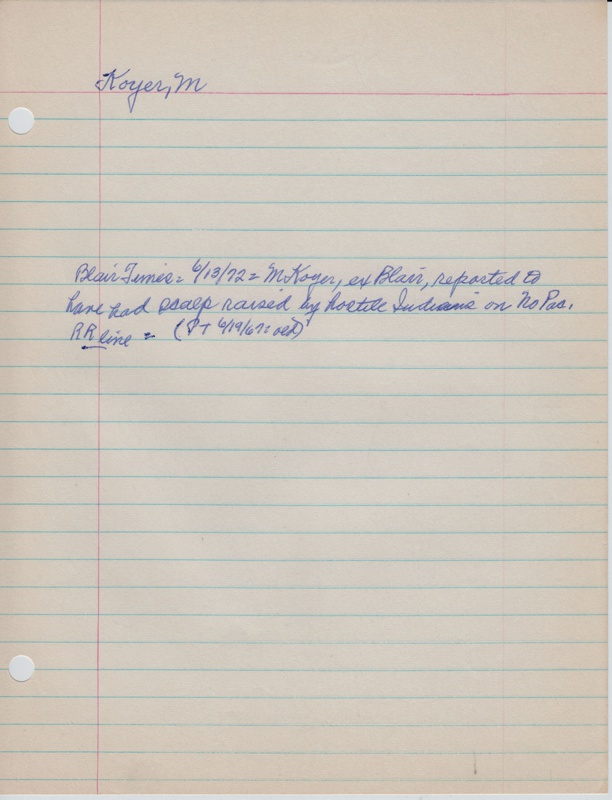 Koyer, M
Blair Times = 6/13/72 = M Koyer, ex Blair, reported to
have had scalp raised by hostile Indians on No Pac.
RR line = (PT 6/19/67: oed)